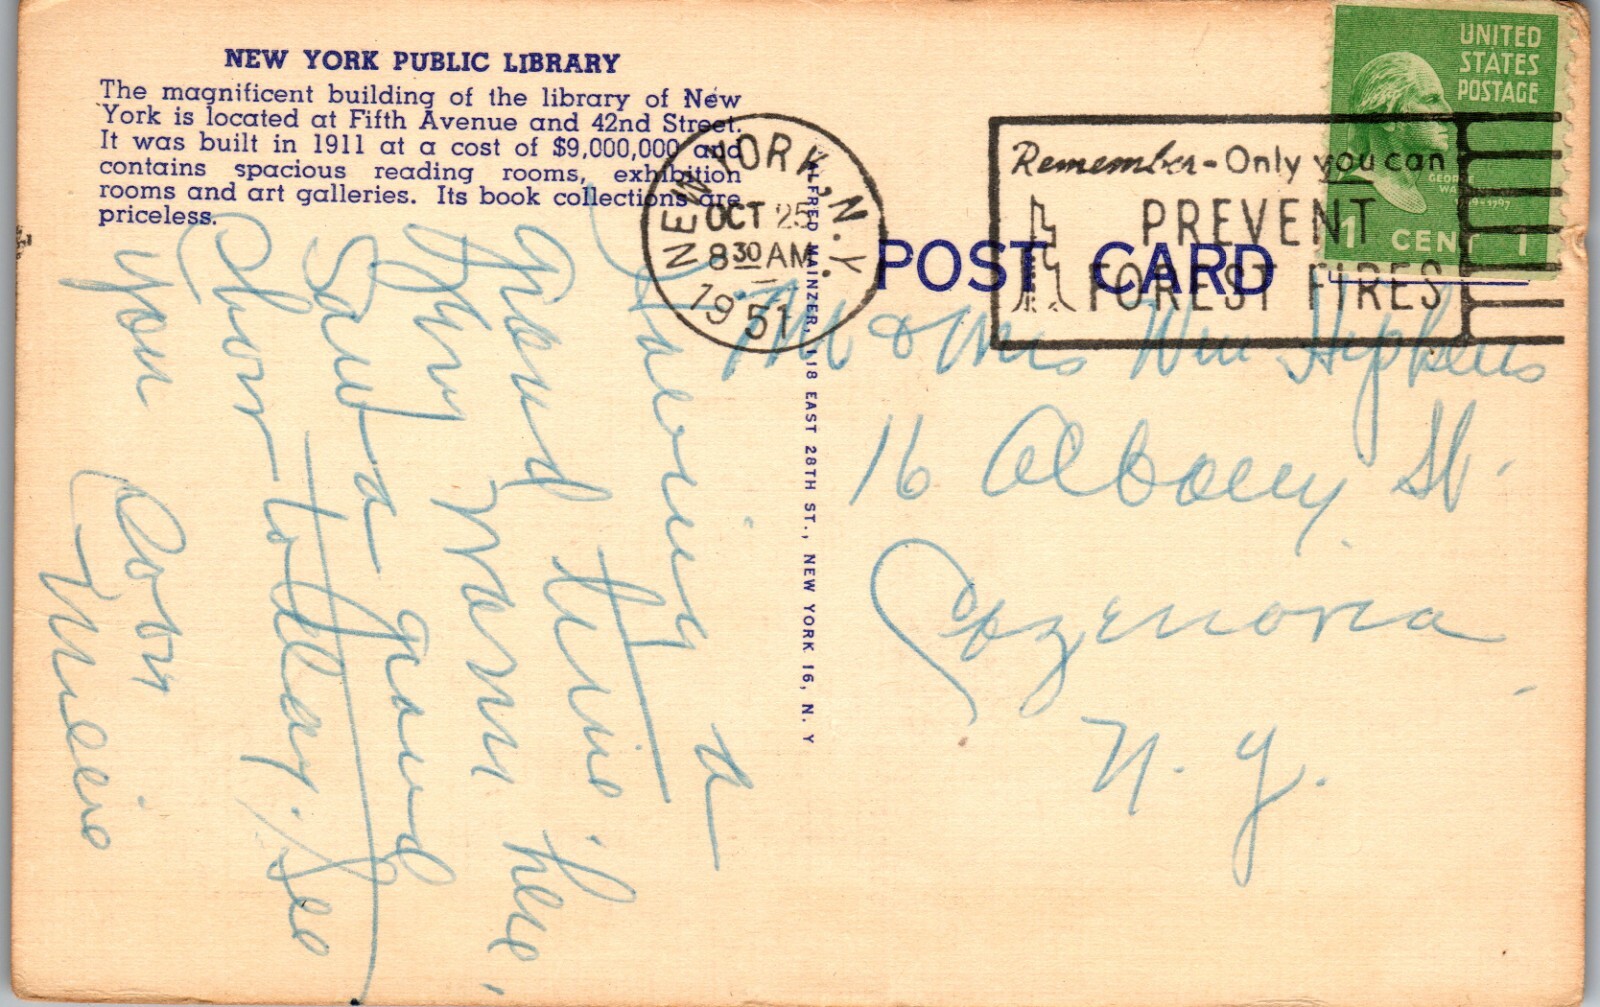 NEW YORK PUBLIC LIBRARY
The magnificent building of the library of New
York is located at Fifth Avenue and 42nd Street.
It was built in 1911 at a cost of $9,000,000 and
contains spacious reading rooms, exhibition
rooms and art galleries. Its book collections are
priceless.
Having a
grand time here,
Dry Warm
Saw a grand
Show today. See
you soon
Millie
ALFRED MAINZER, 118 EAST 28TH ST., NEW YORK 16, N. Y
NEW YORK, N.Y.
OCT 25
8 30 AM
1951
Remember - Only you can
PREVENT
FOREST FIRES
UNITED
STATES
POSTAGE
GEORGE
1 CENT 1
POST CARD
Mr & Mrs Wm Hipkins
16 Albany St.
Cazenovia
N. Y.